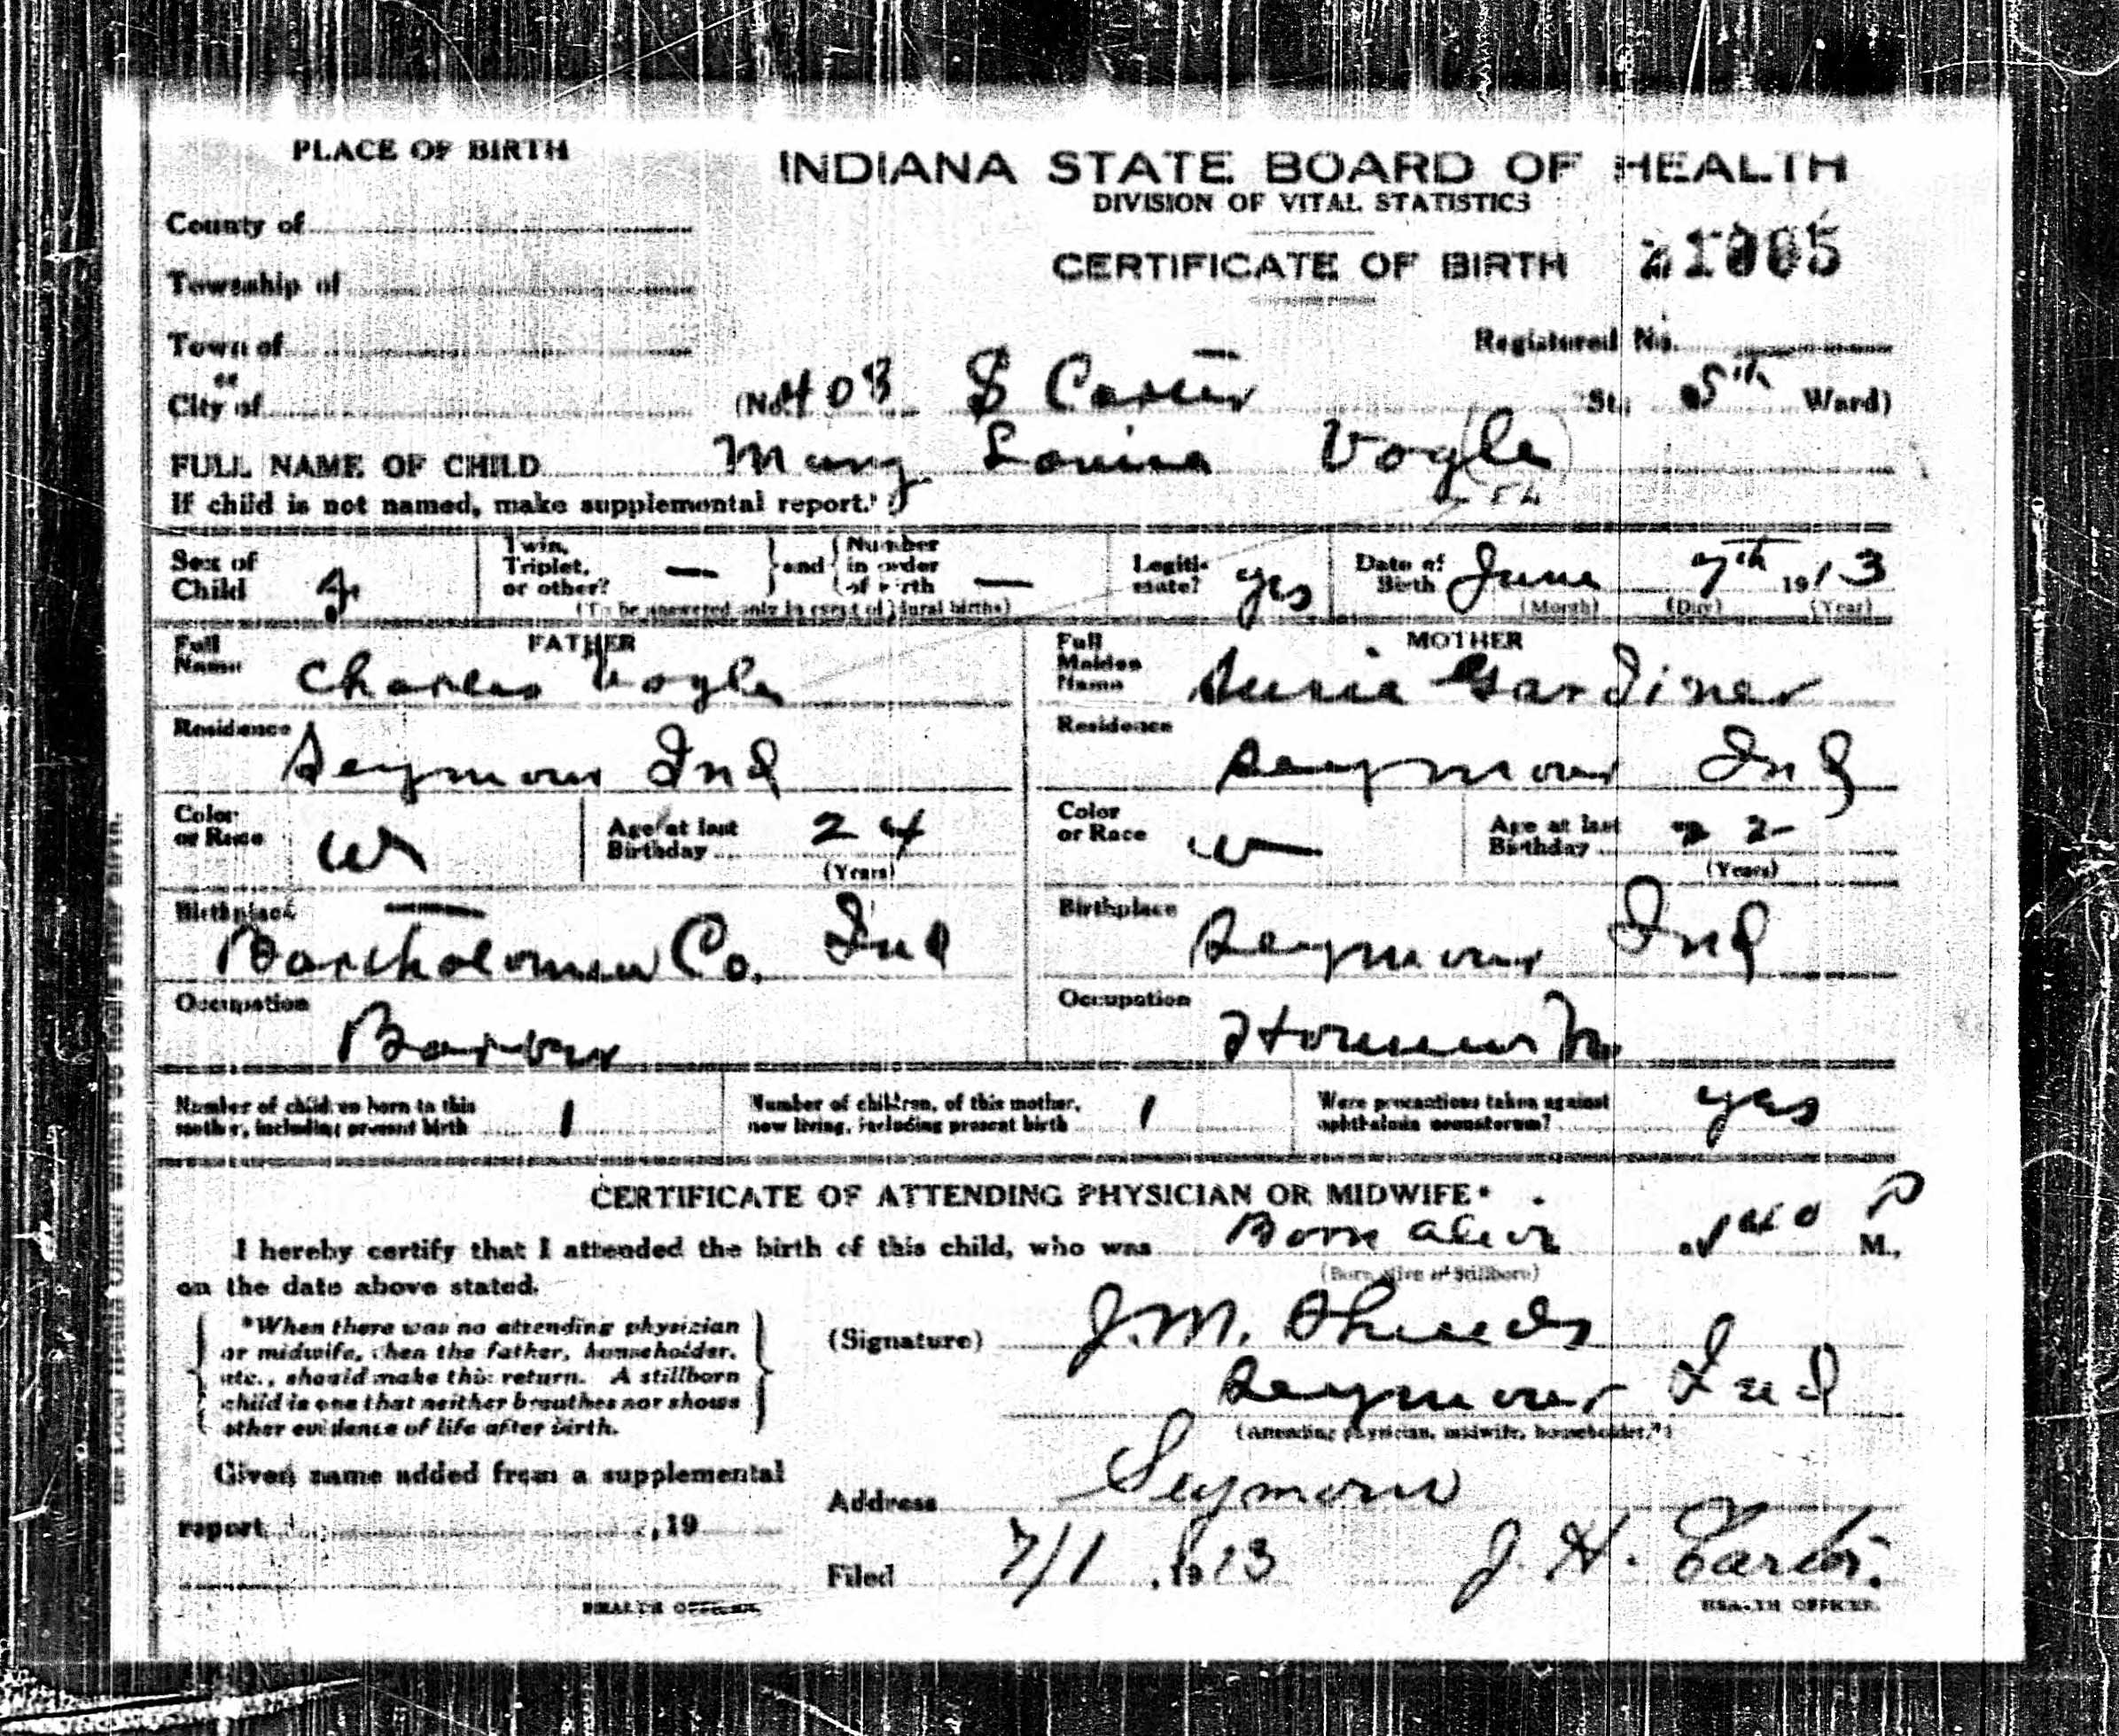 PLACE OF BIRTH
INDIANA STATE BOARD OF HEALTH
DIVISION OF VITAL STATISTICS
County of
CERTIFICATE OF BIRTH
Township of
Town of
Registered No.
or
City of (No. 403 S Carter St.; 5th Ward)
FULL NAME OF CHILD Mary Louisa Vogle
If child is not named, make supplemental report.
Sex of Child
Twin, Triplet, or other? — and Number in order of birth —
(To be answered only in event of plural births)
Legitimate? yes
Date of Birth June 7th 1913
(Month) (Day) (Year)
FATHER
Full Name Charles Vogle
Residence Seymour Ind
Color or Race W
Age at last Birthday 24
(Years)
Birthplace Bartholomew Co. Ind
Occupation Barber
MOTHER
Full Maiden Name Susie Gardiner
Residence Seymour Ind
Color or Race W
Age at last Birthday 22
(Years)
Birthplace Seymour Ind
Occupation
Number of children born to this mother, including present birth 1
Number of children, of this mother, now living, including present birth 1
Were precautions taken against ophthalmia neonatorum? yes
CERTIFICATE OF ATTENDING PHYSICIAN OR MIDWIFE*
I hereby certify that I attended the birth of this child, who was Born alive at P M.,
(Born alive or Stillborn)
on the date above stated.
*When there was no attending physician
or midwife, then the father, householder,
etc., should make this return. A stillborn
child is one that neither breathes nor shows
other evidence of life after birth.
(Signature) J. M. Shields
Seymour Ind
(Attending physician, midwife, householder.*)
Given name added from a supplemental
report , 19
Address Seymour
Filed 7/1, 1913 J. H.
HEALTH OFFICER.
HEALTH OFFICER.